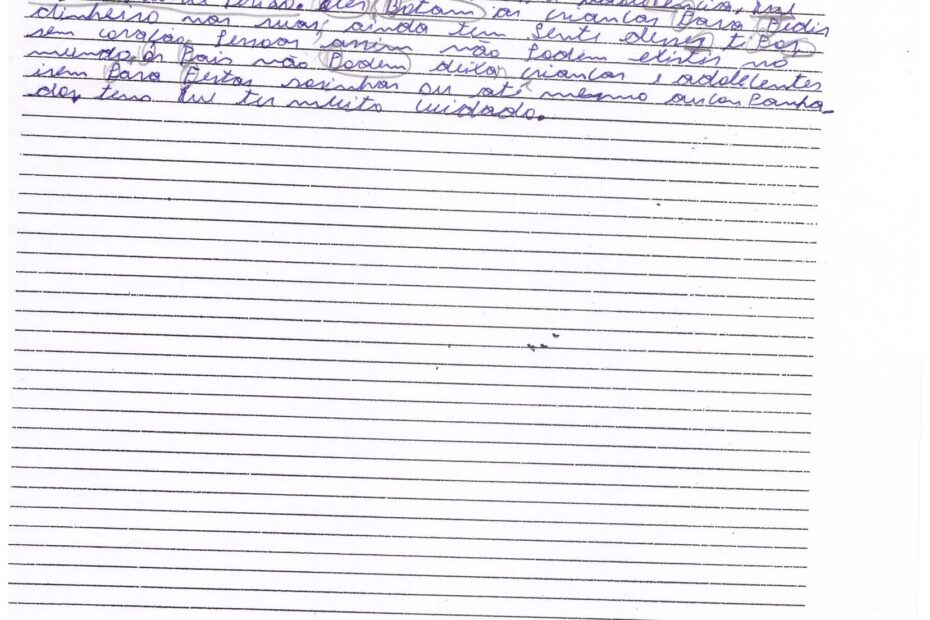 eles Botam as crianças Para Pedir
dinheiro nas ruas, ainda tem Gente desses tiPos
sem coração Pessoas assim não Podem existir no
mundo, os Pais não Podem deixa crianças e adolecentes
irem Para Festas sozinhas ou até mesmo
dos, tem que ter muito cuidado.